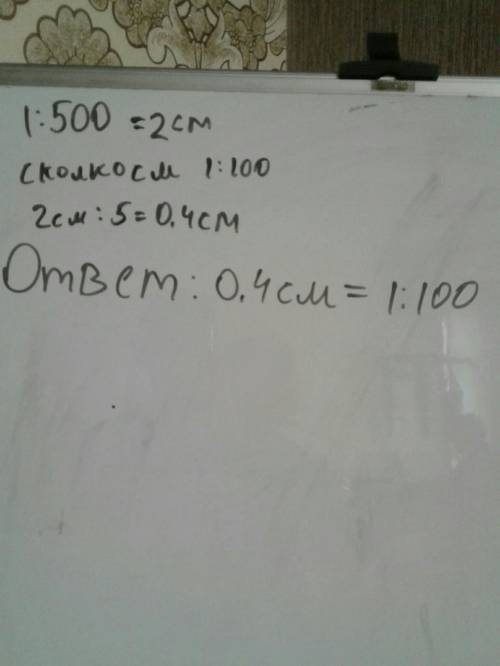 1:500 = 2см
сколко см 1:100
2см : 5 = 0.4см
Ответ: 0.4см = 1:100